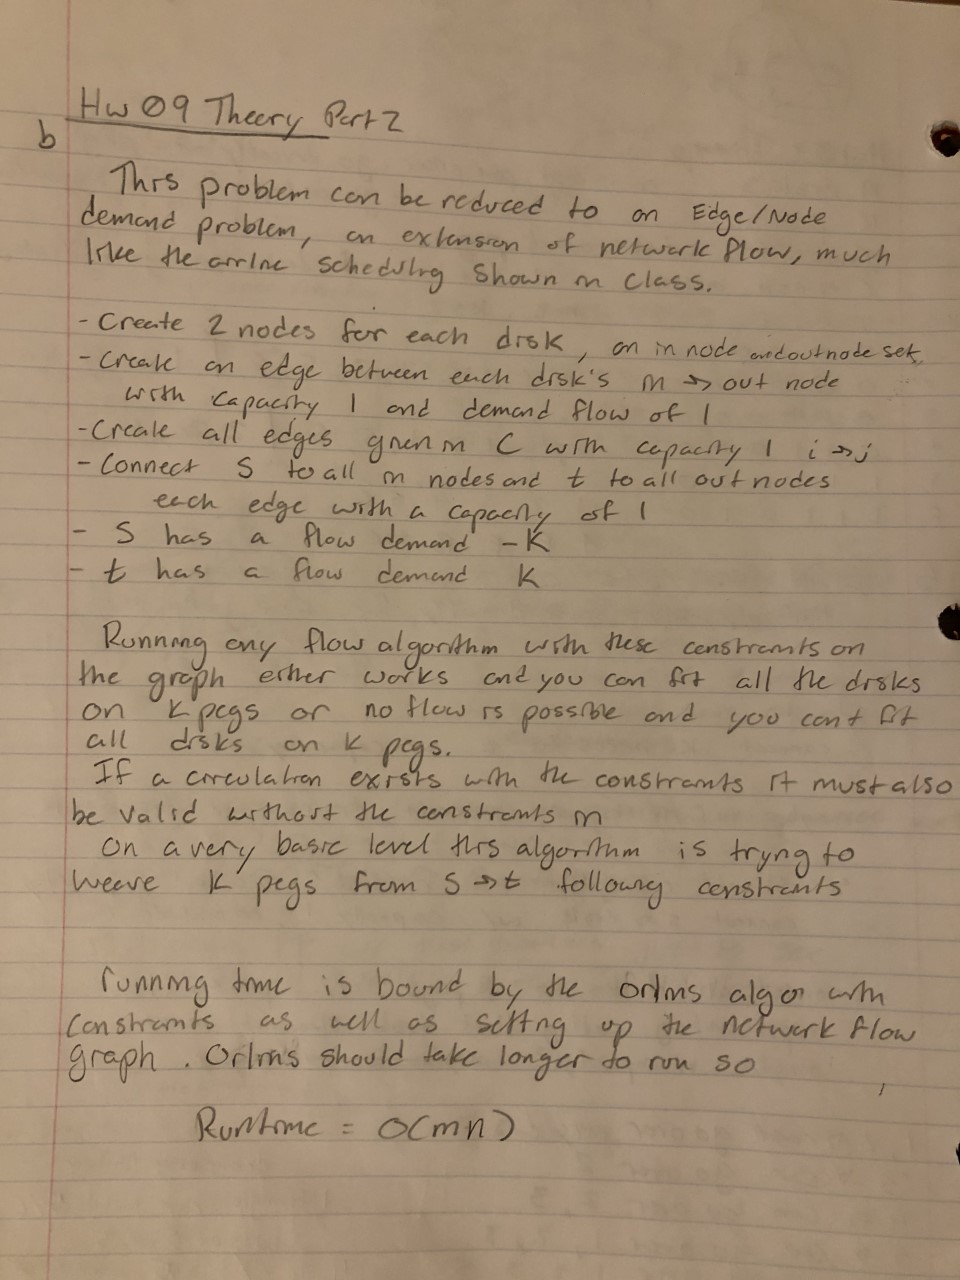 Hw 09 Theory Part 2
b
This problem can be reduced to an Edge/Node
demand problem, an extension of network flow, much
like the airline scheduling shown in class.
- Create 2 nodes for each disk, an in node and out node set,
- Create an edge between each disk's in -> out node
with capacity 1 and demand flow of 1
- Create all edges given in C with capacity 1 i -> j
- Connect S to all in nodes and t to all out nodes
each edge with a capacity of 1
- S has a flow demand -K
- t has a flow demand K
Running any flow algorithm with these constraints on
the graph either works and you can fit all the disks
on K pegs or no flow is possible and you cant fit
all disks on K pegs.
If a circulation exists with the constraints it must also
be valid without the constraints in
On a very basic level this algorithm is trying to
weave K pegs from S -> t following constraints
running time is bound by the Orlins algo with
constraints as well as setting up the network flow
graph. Orlins should take longer to run so
Runtime = O(mn)